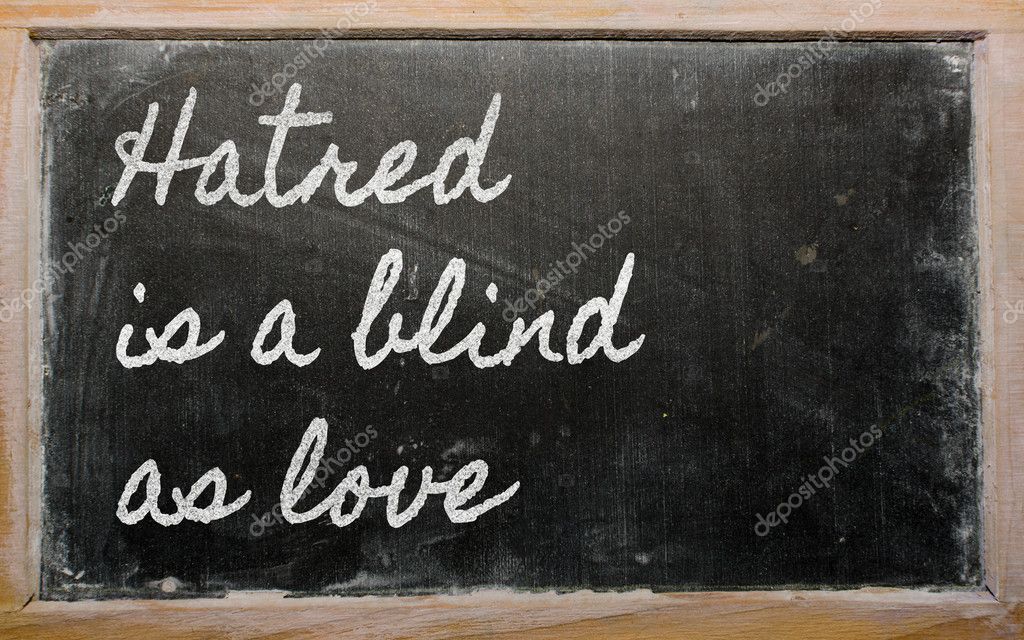 Hatred
is a blind
as love
depositphotos
depositphotos
depositphotos
depositphotos
depositphotos
depositphotos
depositphotos